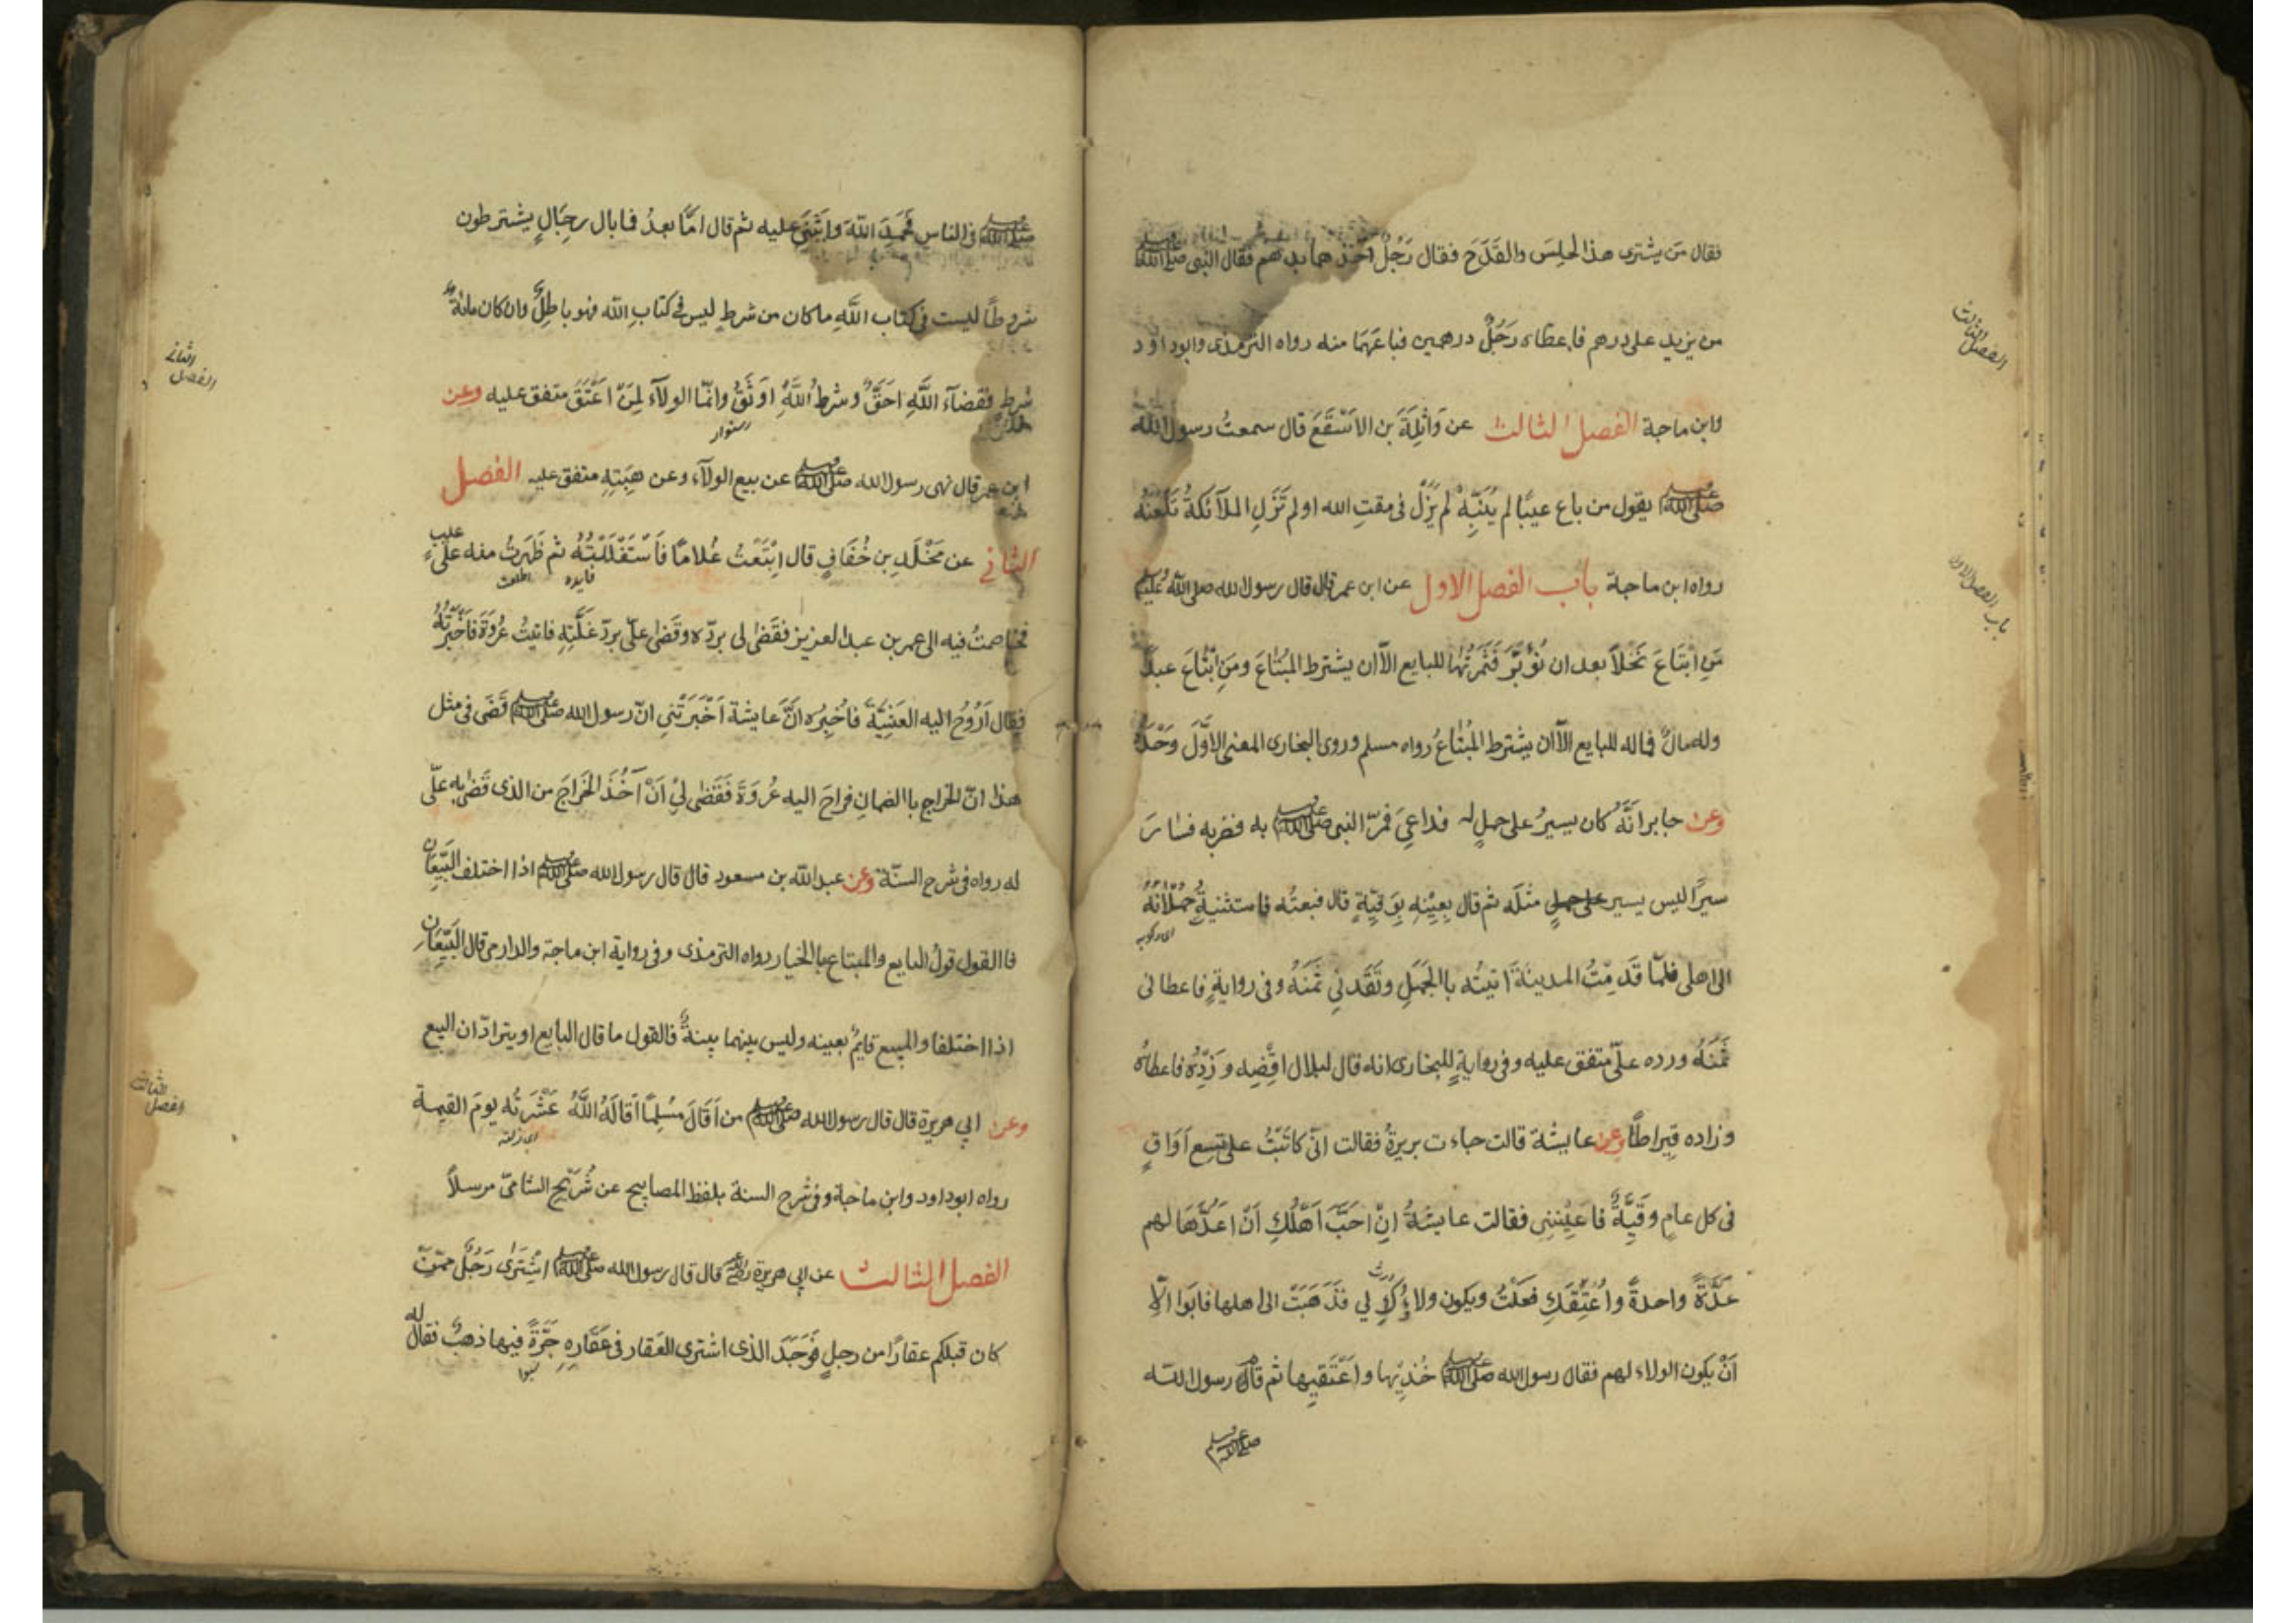 فقال من يشترى هذا الحِلسَ والقَدَحَ فقال رَجُلٌ آخذهما بدرهم فقال النبى صلى الله عليه وسلم
من يزيد على درهم فاعطاه رَجُلٌ درهمين فباعَهُمَا منه رواه الترمذى وابوداؤد
وابن ماجة الفصل الثالث عن وَاثِلَةَ بن الاَسْقَعَ قال سمعتُ رسول الله
صلى الله عليه وسلم يقول من باع عيبًا لم يُنَبِّهْ لم يَزَلْ فى مقتِ الله او لم تَزَلِ الملآئكةُ تَلْعَنُهُ
رواه ابن ماجة باب الفصل الاول عن ابن عمر قال قال رسول الله صلى الله عليه وسلم
مَنِ ابْتَاعَ نَخْلاً بعد ان تُؤَبَّرَ فَثَمَرَتُهَا للبايع الاّ ان يشترط المُبْتَاعَ ومَنِ ابْتَاعَ عبدً
وله مالٌ فماله للبايع الاّ ان يشترط المُبْتَاعُ رواه مسلم وروى البخارى المعنى الاَوَّلَ وَحْدَهُ
وعن جابر انَّهُ كان يسيرُ على جملٍ له قد اعيَ فمَرّ النبى صلى الله عليه وسلم به فضربه فسارَ
سيرًا ليس يسير على جملٍ مثلَه ثم قال بِعِيْنِهِ بِوَقِيَّةٍ قال فبعتُه فاستثنيتُ حُمْلَانَهُ
اى ركوبه
الى اهلى فلمّا قَدِمْتُ المدينةَ اتيتُه باالجَمَلِ ونَقَدنِي ثمنَهُ وفى روايةٍ فاعطانى
ثَمَنَهُ ورده علىّ متفق عليه وفى روايةٍ للبخارى انه قال لبلال اقْضِهِ وَزِدْهُ فاعطاهُ
وزاده قِيراطًا وعن عايشة قالت جاءت بريرةُ فقالت انّى كاتَبْتُ على تِسع اَوَاقٍ
فى كل عامٍ وقَيَّةٌ فاَعِيْنِنِى فقالت عايشةُ اِنْ احَبَّ اَهْلُكِ اَنْ اَعُدَّهَا لهم
عَدَّةً واحدةً واُعْتِقَكِ فعلتُ ويكون ولاؤُكِ لي فذَهَبَتْ الى اهلها فابَوا الاّ
اَنْ يكون الولاء لهم فقال رسول الله صلى الله عليه وسلم خُذِيْها واَعْتِقيها ثم قام رسول الله
صلى الله عليه وسلم
الفصل الثالث
باب الفصل الاول
صلى الله عليه وسلم فى الناس فَحَمِدَ اللّهَ واَثْنَى عليه ثم قال امَّا بعدُ فما بال رِجَالٍ يشترطون
شروطًا ليست فى كتاب اللَّهِ ما كان من شرطٍ ليس فى كتابِ اللّه فهو باطِلٌ وان كان مائةَ
شرط فقضآءُ اللَّهِ احَقُّ وشرطُ اللَّهِ اَوثَقُ وانّما الولآءُ لِمَنْ اَعْتَقَ متفق عليه وعن
ابن عمر قال نهى رسول الله صلى الله عليه وسلم عن بيع الولآء وعن هِبَتِهِ متفق عليه الفصل
الثانى عن مَخْلَدِ بن خُفَافٍ قال ابْتَعْتُ غُلامًا فَاسْتَغْلَلْتُهُ ثم ظَهَرتُ منه على عيب
فخاصمتُ فيه الى عمر بن عبد العزيز فقَضٰى لى بردّه وقَضٰى علىّ بردّ غَلَّتِهِ فاتيتُ عُروَةَ فاَخْبَرْتُهُ
فقال اَرُوْحُ اليه العَشِيَّةَ فاُخبِرُه انَّ عايشةَ اَخْبَرَتْنِى انّ رسول الله صلى الله عليه وسلم قَضَى فى مثل
هذا انّ الخراج باالضمانِ فراحَ اليه عُروَةَ فَقَضٰى لِيْ اَنْ آخُذَ الخَرَاجَ من الذى قَضٰى به علَّى
له رواه فى شرح السنّة وعن عبد الله بن مسعود قال قال رسول الله صلى الله عليه وسلم اذا اختلف البَيِّعَانِ
فاالقول قولُ البايع والمبتاع باالخيار رواه الترمذى وفى رواية ابن ماجة والدارمى قال البَيِّعَانِ
اذا اختلفا والمبيع قايمٌ بعينه وليس بينهما بينةٌ فالقول ما قال البايع او يترادّان البيع
وعن ابي هريرة قال قال رسول الله صلى الله عليه وسلم من اَقَالَ مُسْلِمًا اَقَالَهُ اللَّهُ عَثْرَتَه يومَ القيمة
رواه ابوداود وابن ماجة وفى شرح السنة بلفظ المصابيح عن شُرَيْحِ الشامىّ مرسلاً
الفصل الثالث عن ابي هريرة قال قال رسول الله صلى الله عليه وسلم اشْتَرٰى رَجُلٌ ممّن
كان قبلكم عقارًا من رجلٍ فَوَجَدَ الذى اشترى العَقار فى عَقَارِهِ جَرَّةً فيها ذهبٌ فقال له
الفصل الثانى
الفصل الثالث